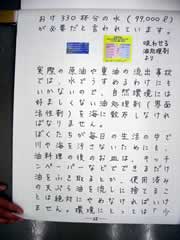 おけ330杯分の水(99,000ℓ)
が必要だと言われています。
吸わせる
油処理剤
より
実際の原油や重油の流出事故
では、水でうすめるわけに
いかないので、自然環境には
好ましくない油処理剤(界面
活性剤)を海に散布しなけれ
ばなりません。
ぼくたちが毎日の生活の中で
川や海を汚さないためにも、
油料理の後のお皿は、キッチ
ンペーパーなどでできるだけ
油をふき取るとか、使用済み
の天ぷら油を流しに捨てるこ
とは絶対にやめなければいけ
ません。環境にとっては「少